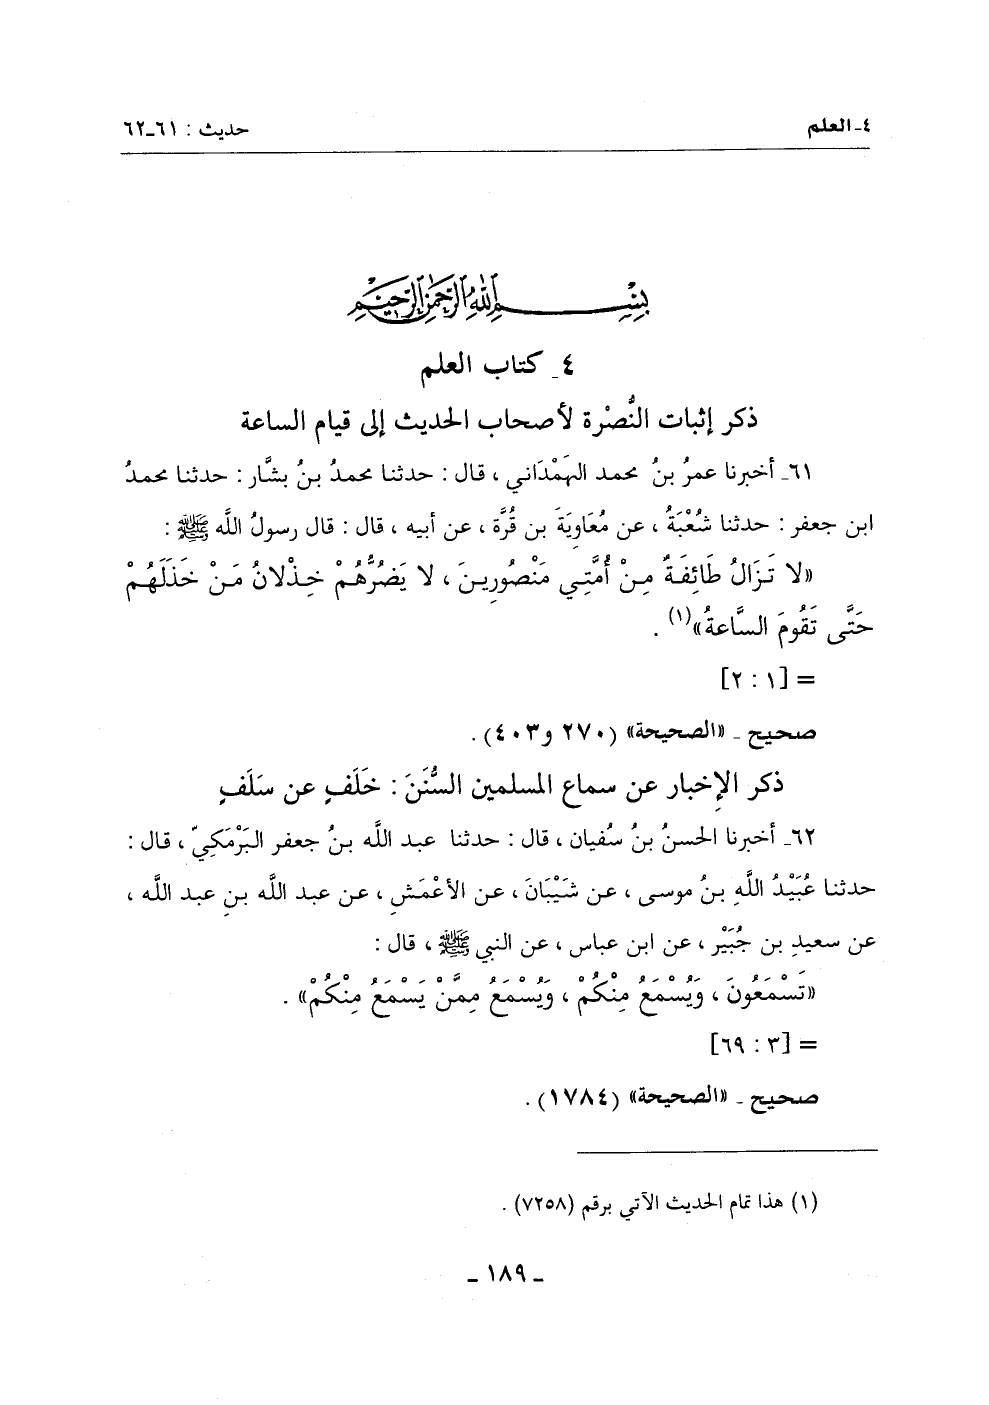 ٤ـ العلم
حديث : ٦١ـ٦٢
بِسْمِ اللهِ الرَّحْمَنِ الرَّحِيمِ
٤ـ كتاب العلم
ذكر إثبات النُّصْرة لأصحاب الحديث إلى قيام الساعة
٦١ـ أخبرنا عمرُ بنُ محمد الهَمْدَاني ، قال : حدثنا محمدُ بنُ بشَّار : حدثنا محمدُ
ابن جعفر : حدثنا شُعْبَةُ ، عن مُعَاوِيَةَ بن قُرَّة ، عن أبيه ، قال : قال رسولُ اللَّه ﷺ :
«لا تَزَالُ طَائِفَةٌ مِنْ أُمَّتِي مَنْصُورِينَ ، لا يَضُرُّهُمْ خِذْلانُ مَنْ خَذَلَهُمْ
حَتَّى تَقُومَ السَّاعةُ»(١) .
= [١ : ٢]
صحيح ـ «الصحيحة» (٢٧٠ و٤٠٣) .
ذكر الإخبار عن سماع المسلمين السُّنَنَ : خَلَفٍ عن سَلَفٍ
٦٢ـ أخبرنا الحسنُ بنُ سُفيان ، قال : حدثنا عبد اللَّه بنُ جعفر البَرْمَكِيّ ، قال :
حدثنا عُبَيْدُ اللَّهِ بنُ موسى ، عن شَيْبَانَ ، عن الأعْمَشِ ، عن عبد اللَّه بنِ عبد اللَّه ،
عن سعيدِ بن جُبَيْر ، عن ابن عباس ، عن النبي ﷺ ، قال :
«تَسْمَعُونَ ، وَيُسْمَعُ مِنْكُمْ ، وَيُسْمَعُ مِمَّنْ يَسْمَعُ مِنْكُمْ» .
= [٣ : ٦٩]
صحيح ـ «الصحيحة» (١٧٨٤) .
(١) هذا تمام الحديث الآتي برقم (٧٢٥٨) .
ـ ١٨٩ ـ